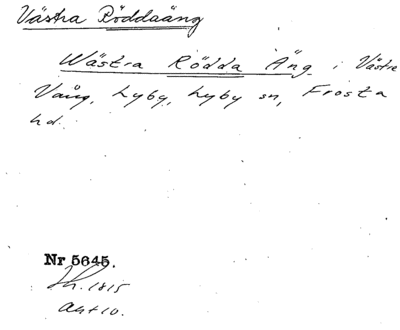 Västra Röddaäng
Wästra Rödda Äng i Västra
Vång, Lyby, Lyby sn, Frosta
hd.
Nr 5645.
1815
Akt 10.